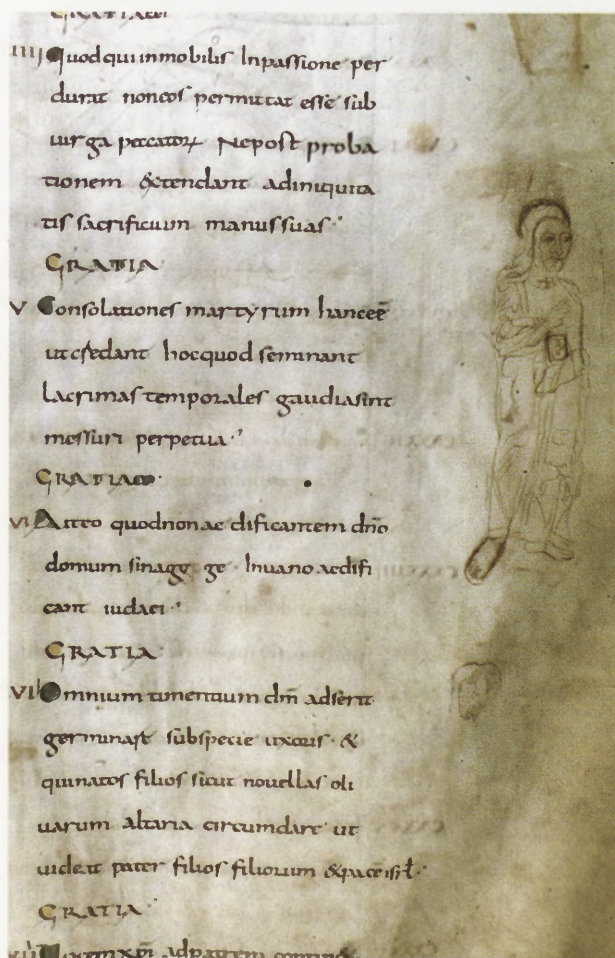 GRATIA
IIII Quod qui inmobilis In passione per
durat non eos permittat esse sub
uirga peccatorum Ne post proba
tionem & tendant ad iniquita
tis sacrificium manus suas
GRATIA
V Consolationes martyrum hanc eē
ut credant hoc quod seminant
lacrimas temporales gaudia sint
messuri perpetua
GRATIA
VI Aiteo quod non aedificantem dn̄o
domum sinagoge Inuano aedifi
cant iudaei
GRATIA
VII Omnium timentium dm̄ adserit
germinast sub specie uxoris &
qui natos filios sicut nouellas oli
uarum altaria circumdare ut
uideat pater filios filiorum & pacē isrł
GRATIA
xp̄i ad patrem